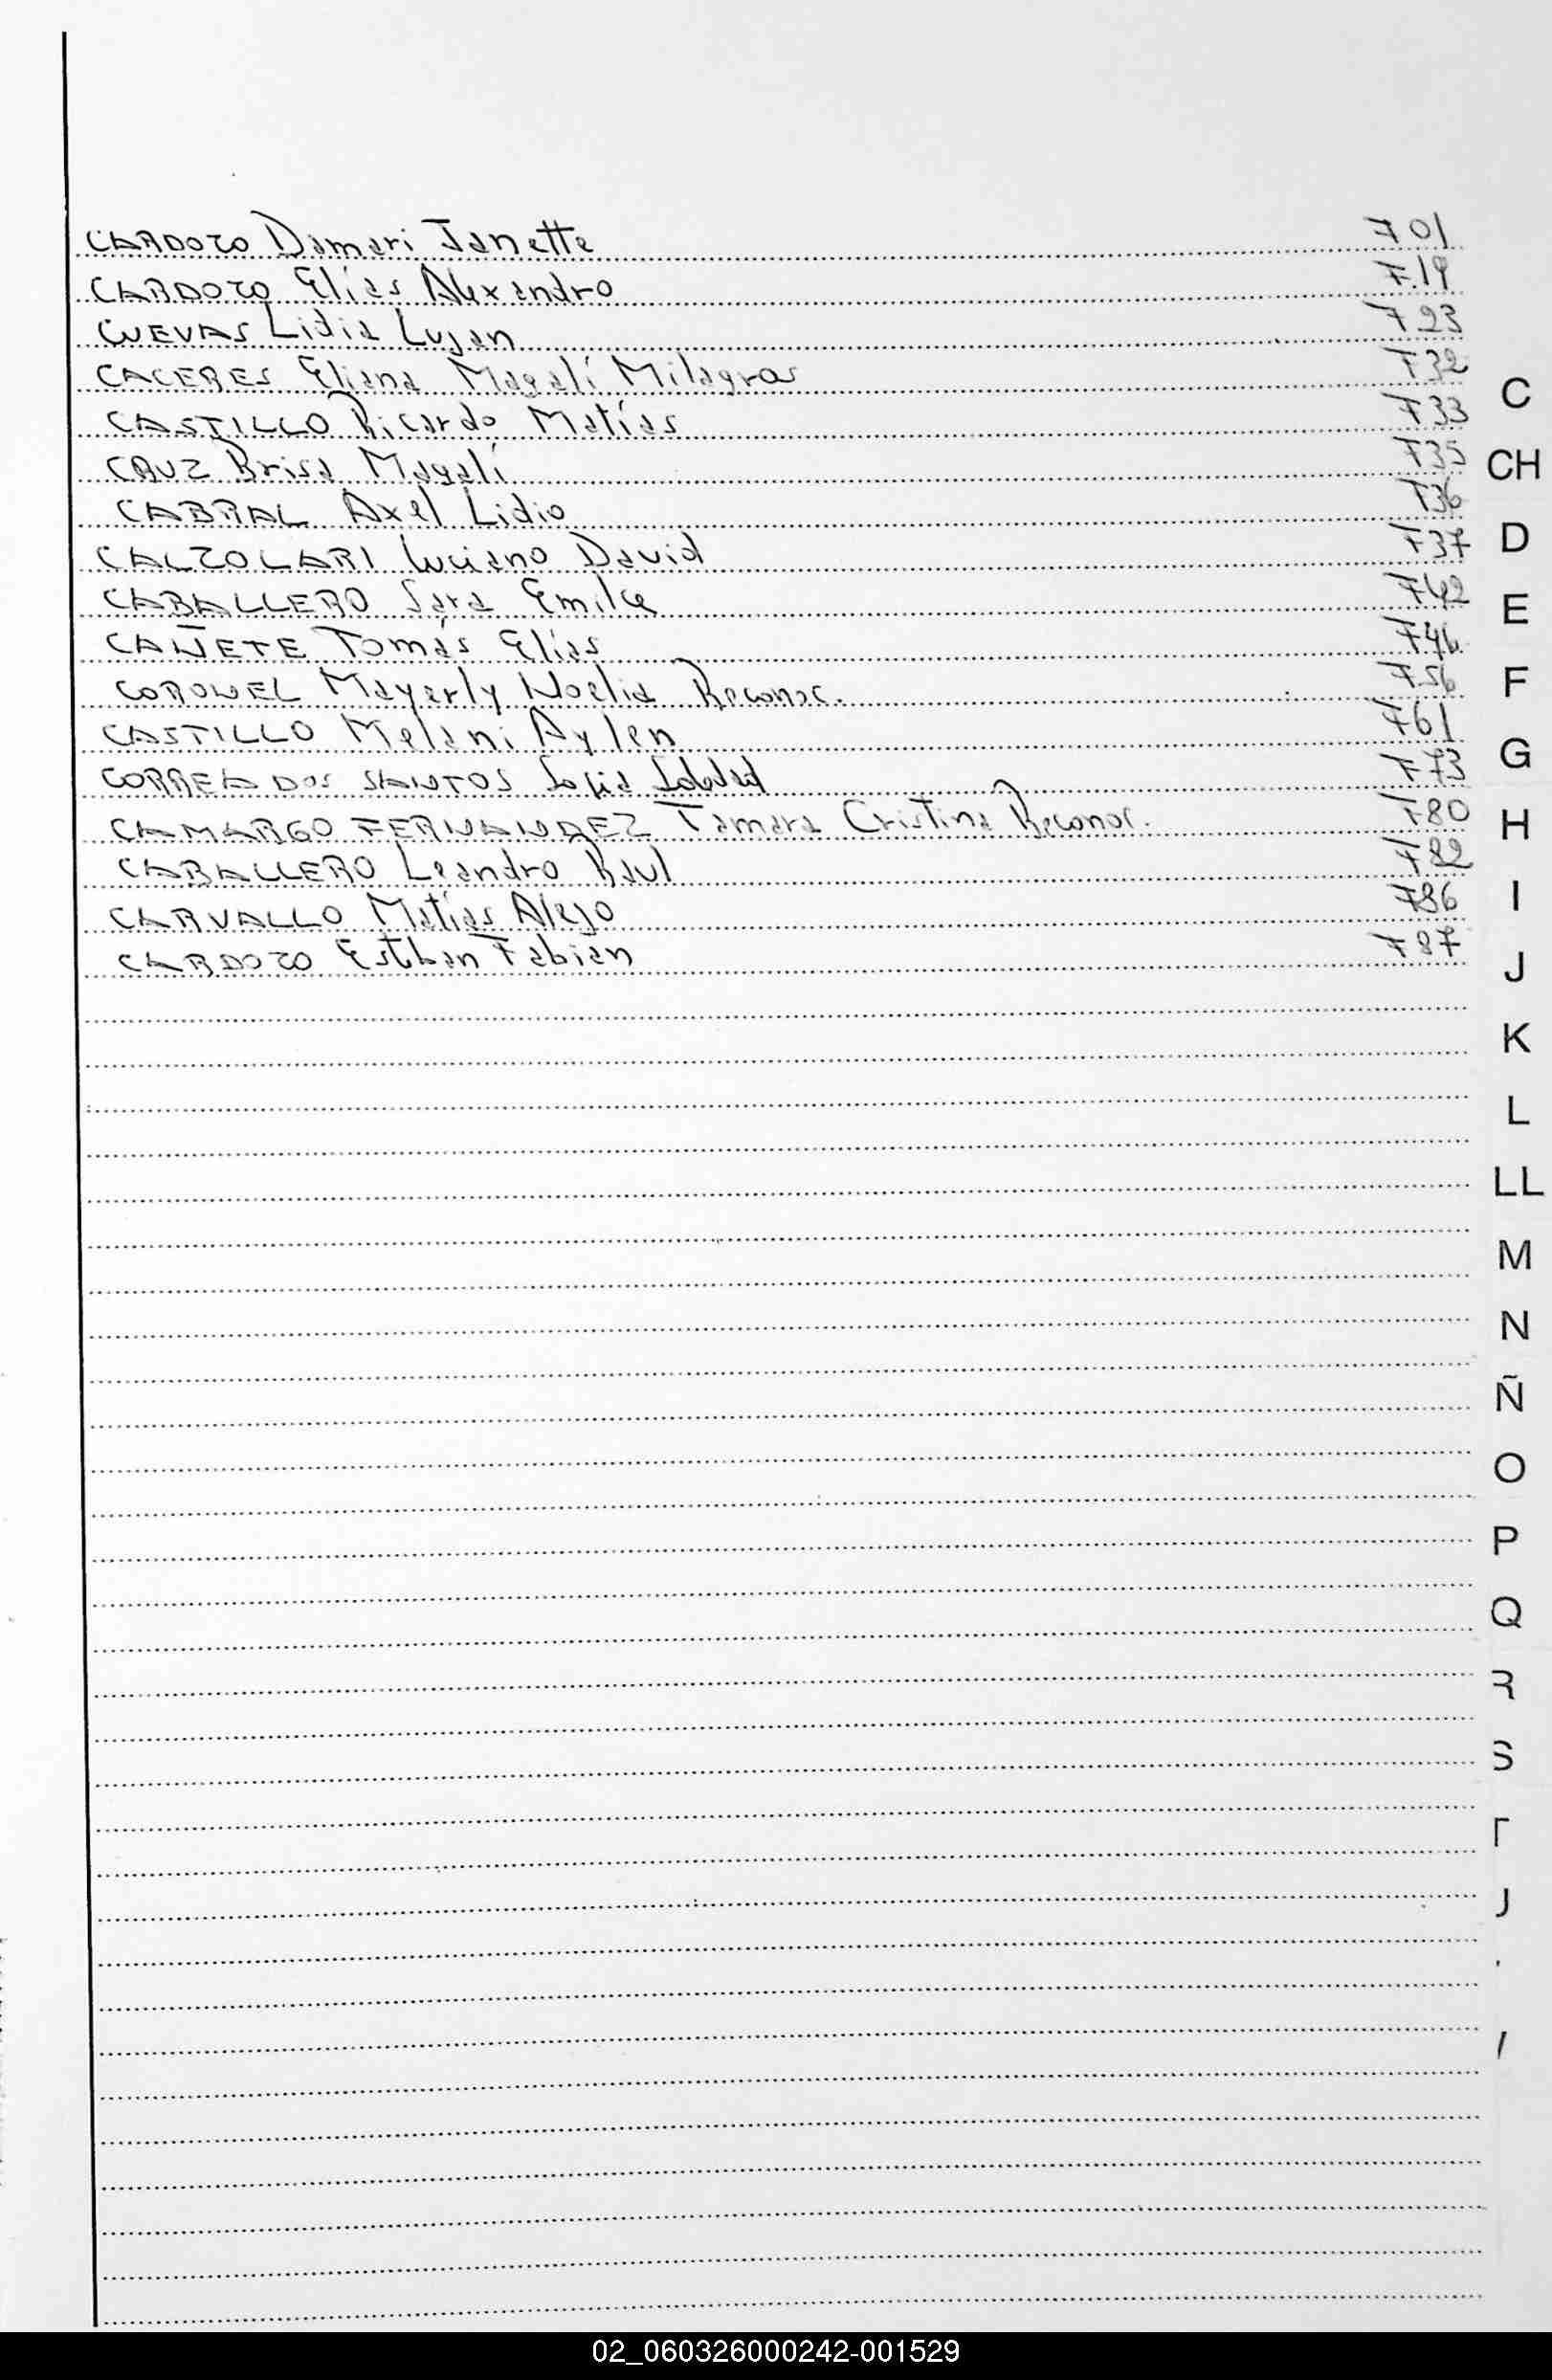 CARDOZO Damari Janette F 01
CARDOZO Elías Alexandro F.19
CUEVAS Lidia Lujan F 23
CACERES Eliana Magalí Milagros F32
C
CASTILLO Ricardo Matías F33
CRUZ Brisa Magalí F35
CH
CABRAL Axel Lidio F36
CALZOLARI Luciano David F37
D
CABALLERO Sara Emilce F42
E
CAÑETE Tomás Elías F46
CORONEL Mayerly Noelia Reconoc. F56
F
CASTILLO Melani Aylen F61
G
CORREA DOS SANTOS Sofia Soledad F73
CAMARGO FERNANDEZ Tamara Cristina Reconoc. F80
H
CABALLERO Leandro Raul F82
CARVALLO Matías Alejo F86
I
CARDOZO Esteban Fabian F 87
J
K
L
LL
M
N
Ñ
O
P
Q
R
S
T
U
02_060326000242-001529